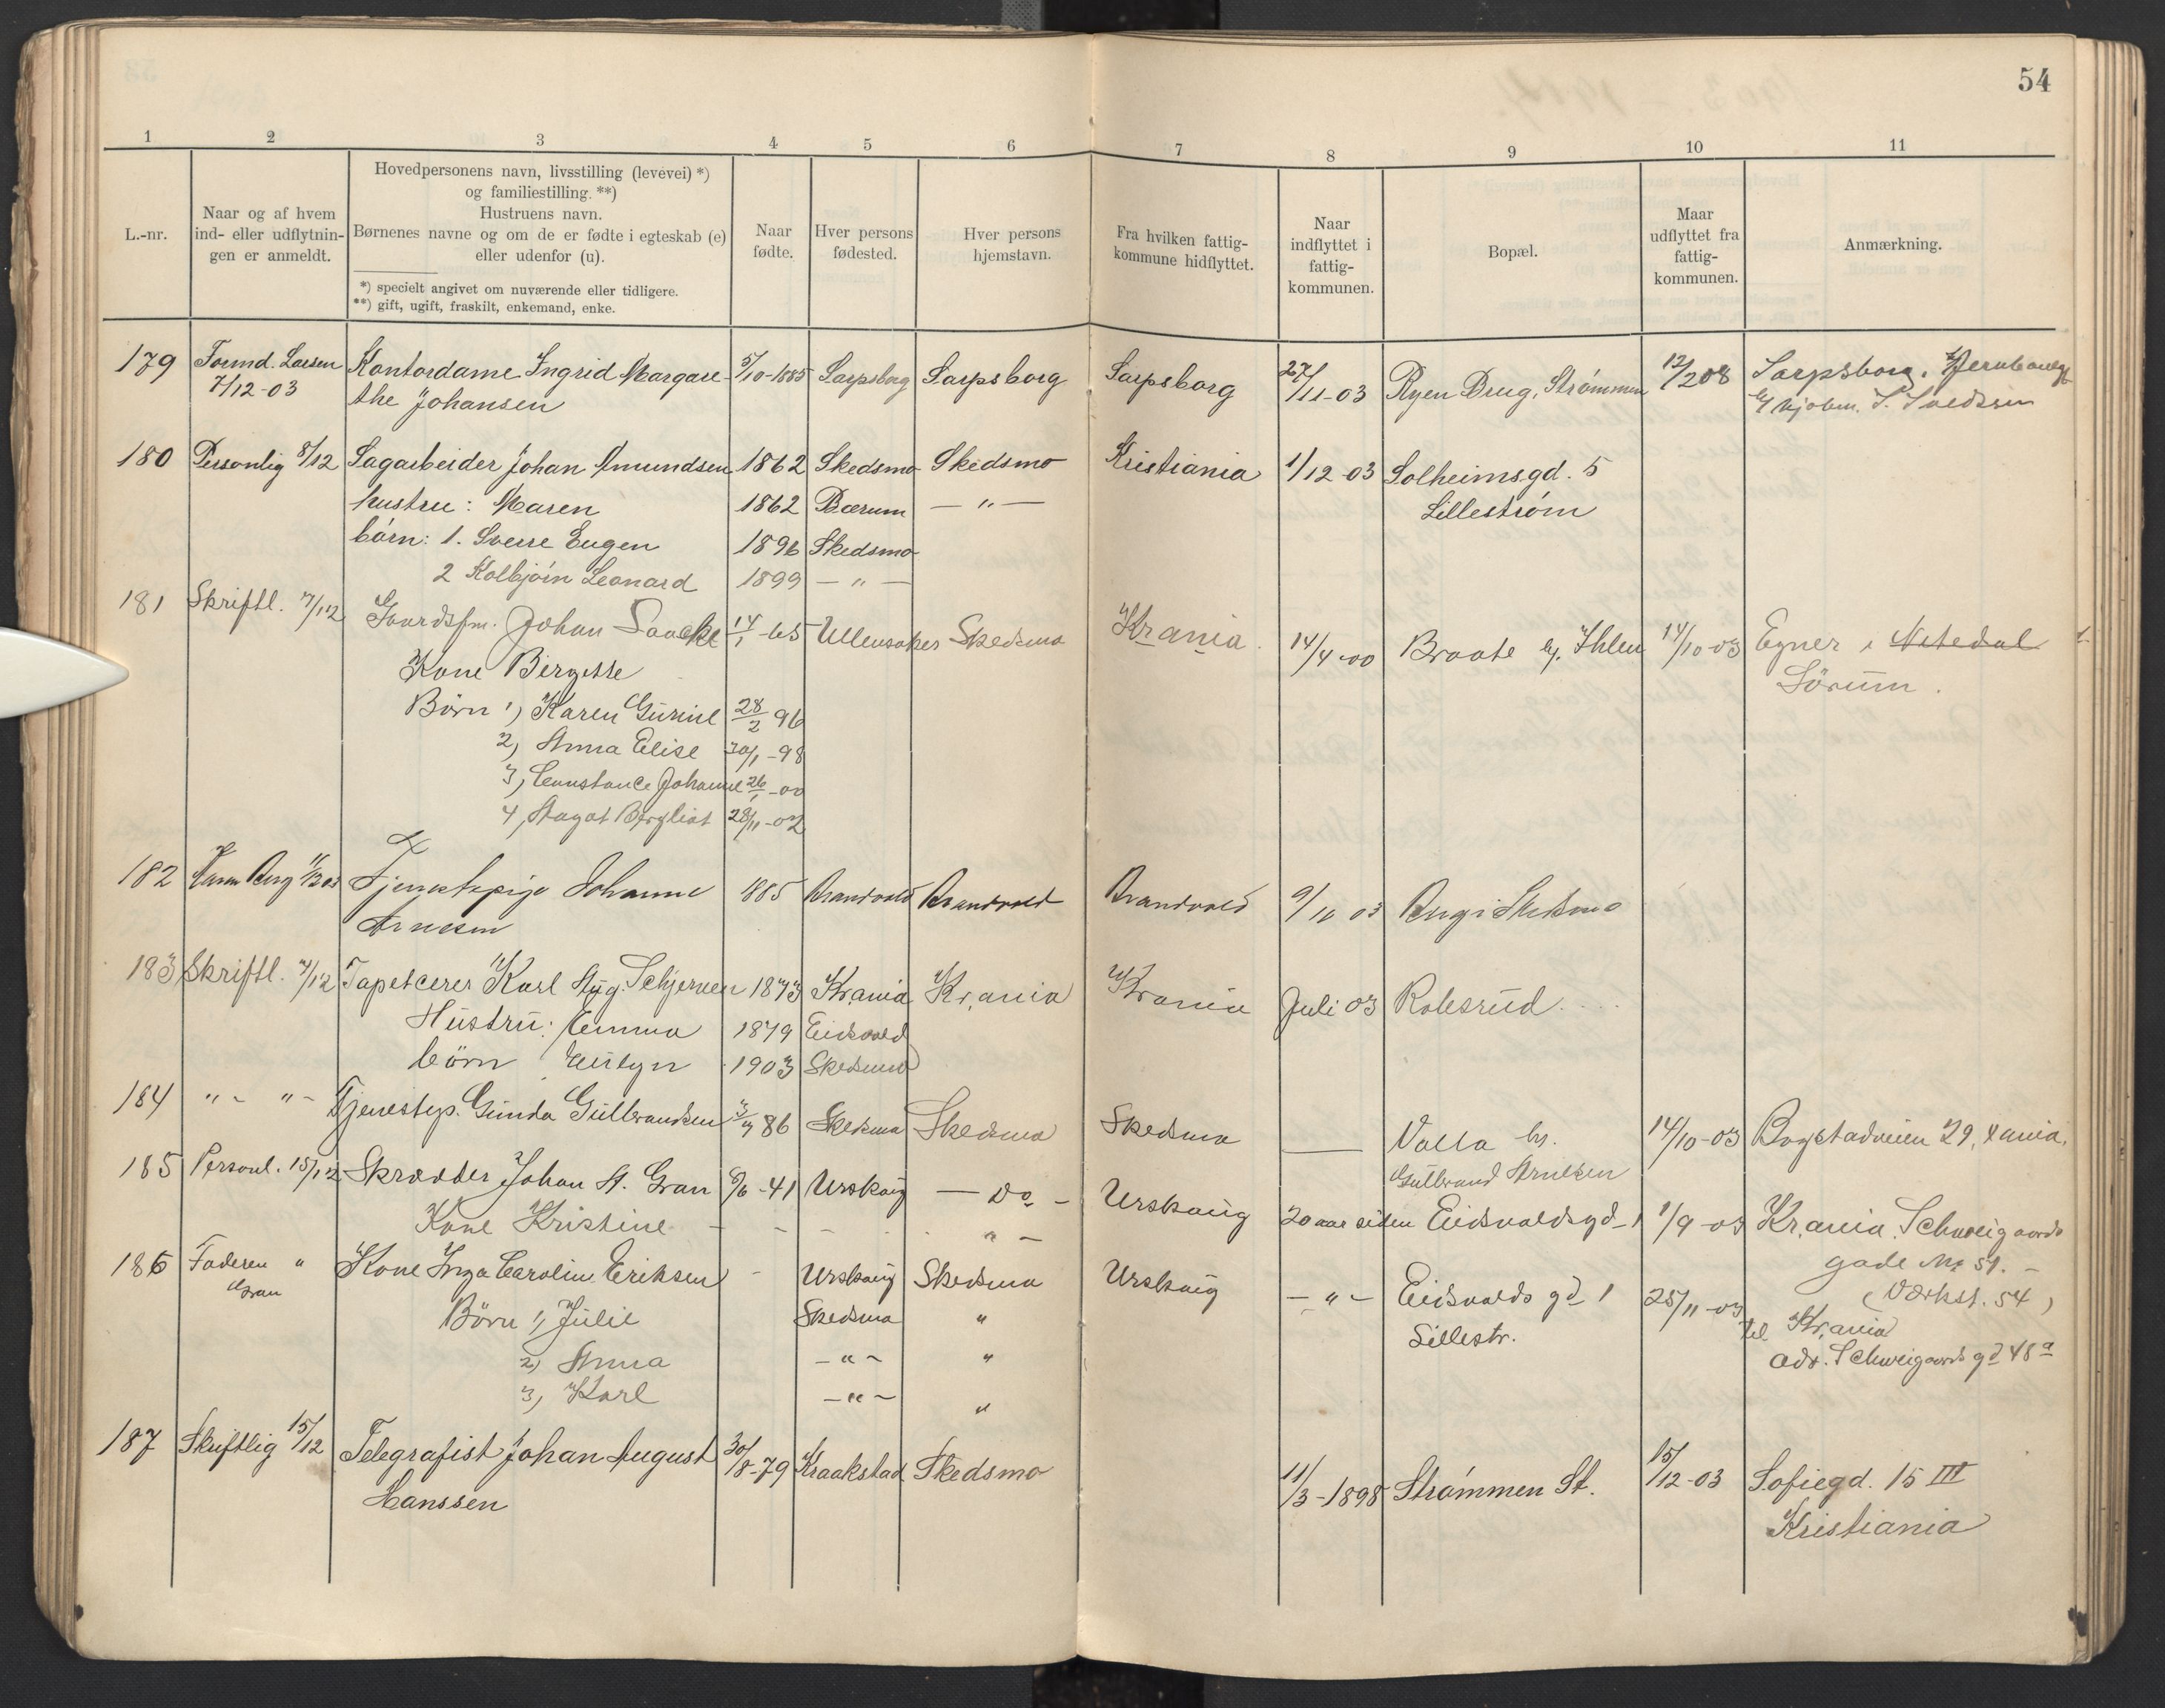 54
1 2 3 4 5 6 7 8 9 10 11
L.-nr.
Naar og af hvem
ind- eller udflytnin-
gen er anmeldt.
Hovedpersonens navn, livsstilling (levevei) *)
og familiestilling. **)
Hustruens navn.
Børnenes navne og om de er fødte i egteskab (e)
eller udenfor (u).
*) specielt angivet om nuværende eller tidligere.
**) gift, ugift, fraskilt, enkemand, enke.
Naar
fødte.
Hver persons
fødested.
Hver persons
hjemstavn.
Fra hvilken fattig-
kommune hidflyttet.
Naar
indflyttet i
fattig-
kommunen.
Bopæl.
Maar
udflyttet fra
fattig-
kommunen.
Anmærkning.
179 Formd. Larsen Kontordame Ingrid Margare- 5/10-1885 Sarpsborg Sarpsborg Sarpsborg 27/11-03 Ryen Brug, Strømmen 12/2 08 Sarpsborg.
7/12-03 the Johansen
180 Personlig 8/12 Sagarbeider Johan Amundsen 1862 Skedsmo Skedsmo Kristiania 1/12-03 Solheimsgd. 5
hustru: Maren 1862 Bærum — " — Lillestrøm
børn: 1. Sverre Eugen 1896 Skedsmo
2 Kolbjørn Leonard 1899 — " —
181 Skriftl. 7/12 Gaardsfm. Johan Saacke 14/1-65 Ullensaker Skedsmo Kr.ania 14/4-00 Braate by. Ihlen 14/10-03 Egner i Nitedal
Kone Bergitte Sörum.
Børn 1) Karen Gurine 28/2 96
2) Anna Elise 30/1-98
3) Constance Johanne 26/1-00
4) Aagot Bergliot 28/11-02
182 Tjenestepige Johanne 885 Brandvold Brandvold Brandvold 9/10 03 Berg i Skedsmo
Arnesen
183 Skriftl. 7/12 Tapetcerer Karl Aug. Schjerven 1873 Kr.ania Kr.ania Kr.ania Juli 03 Rolesrud
Hustru: Emma 1879 Eidsvold
börn Eustyn 1903 Skedsmo
184 " - " - Tjenestep. Gunda Gulbrandsen 3/4 86 Skedsmo Skedsmo Skedsmo — Valla by. 14/10-03 Bogstadveien 29, Xania.
Gulbrand Arnesen
185 Personl. 15/12 Skrædder Johan A. Gran 6/6-41 Urskoug — Do - Urskoug 20 aar siden Eidsvoldsgd-1 1/9-03 Kr.ania. Schweigaards
Kone Kristine - - - " - gade No 51. -
(Værkst. 54)
186 Faderen " Kone Inga Carolin Eriksen - Urskoug Skedsmo Urskoug — " - Eidsvolds gd 1 25/11-03 til Kr.ania
Gran Børn 1) Julie Skedsmo " Lillestr. adr. Schweigaards gd 48 a
2) Anna — " - "
3) Karl — " - "
187 Skriftlig 15/12 Telegrafist Johan August 30/8-79 Kraakstad Skedsmo 11/3-1898 Strømmen St. 15/12-03 Sofiegd. 15 III
Hanssen Kristiania